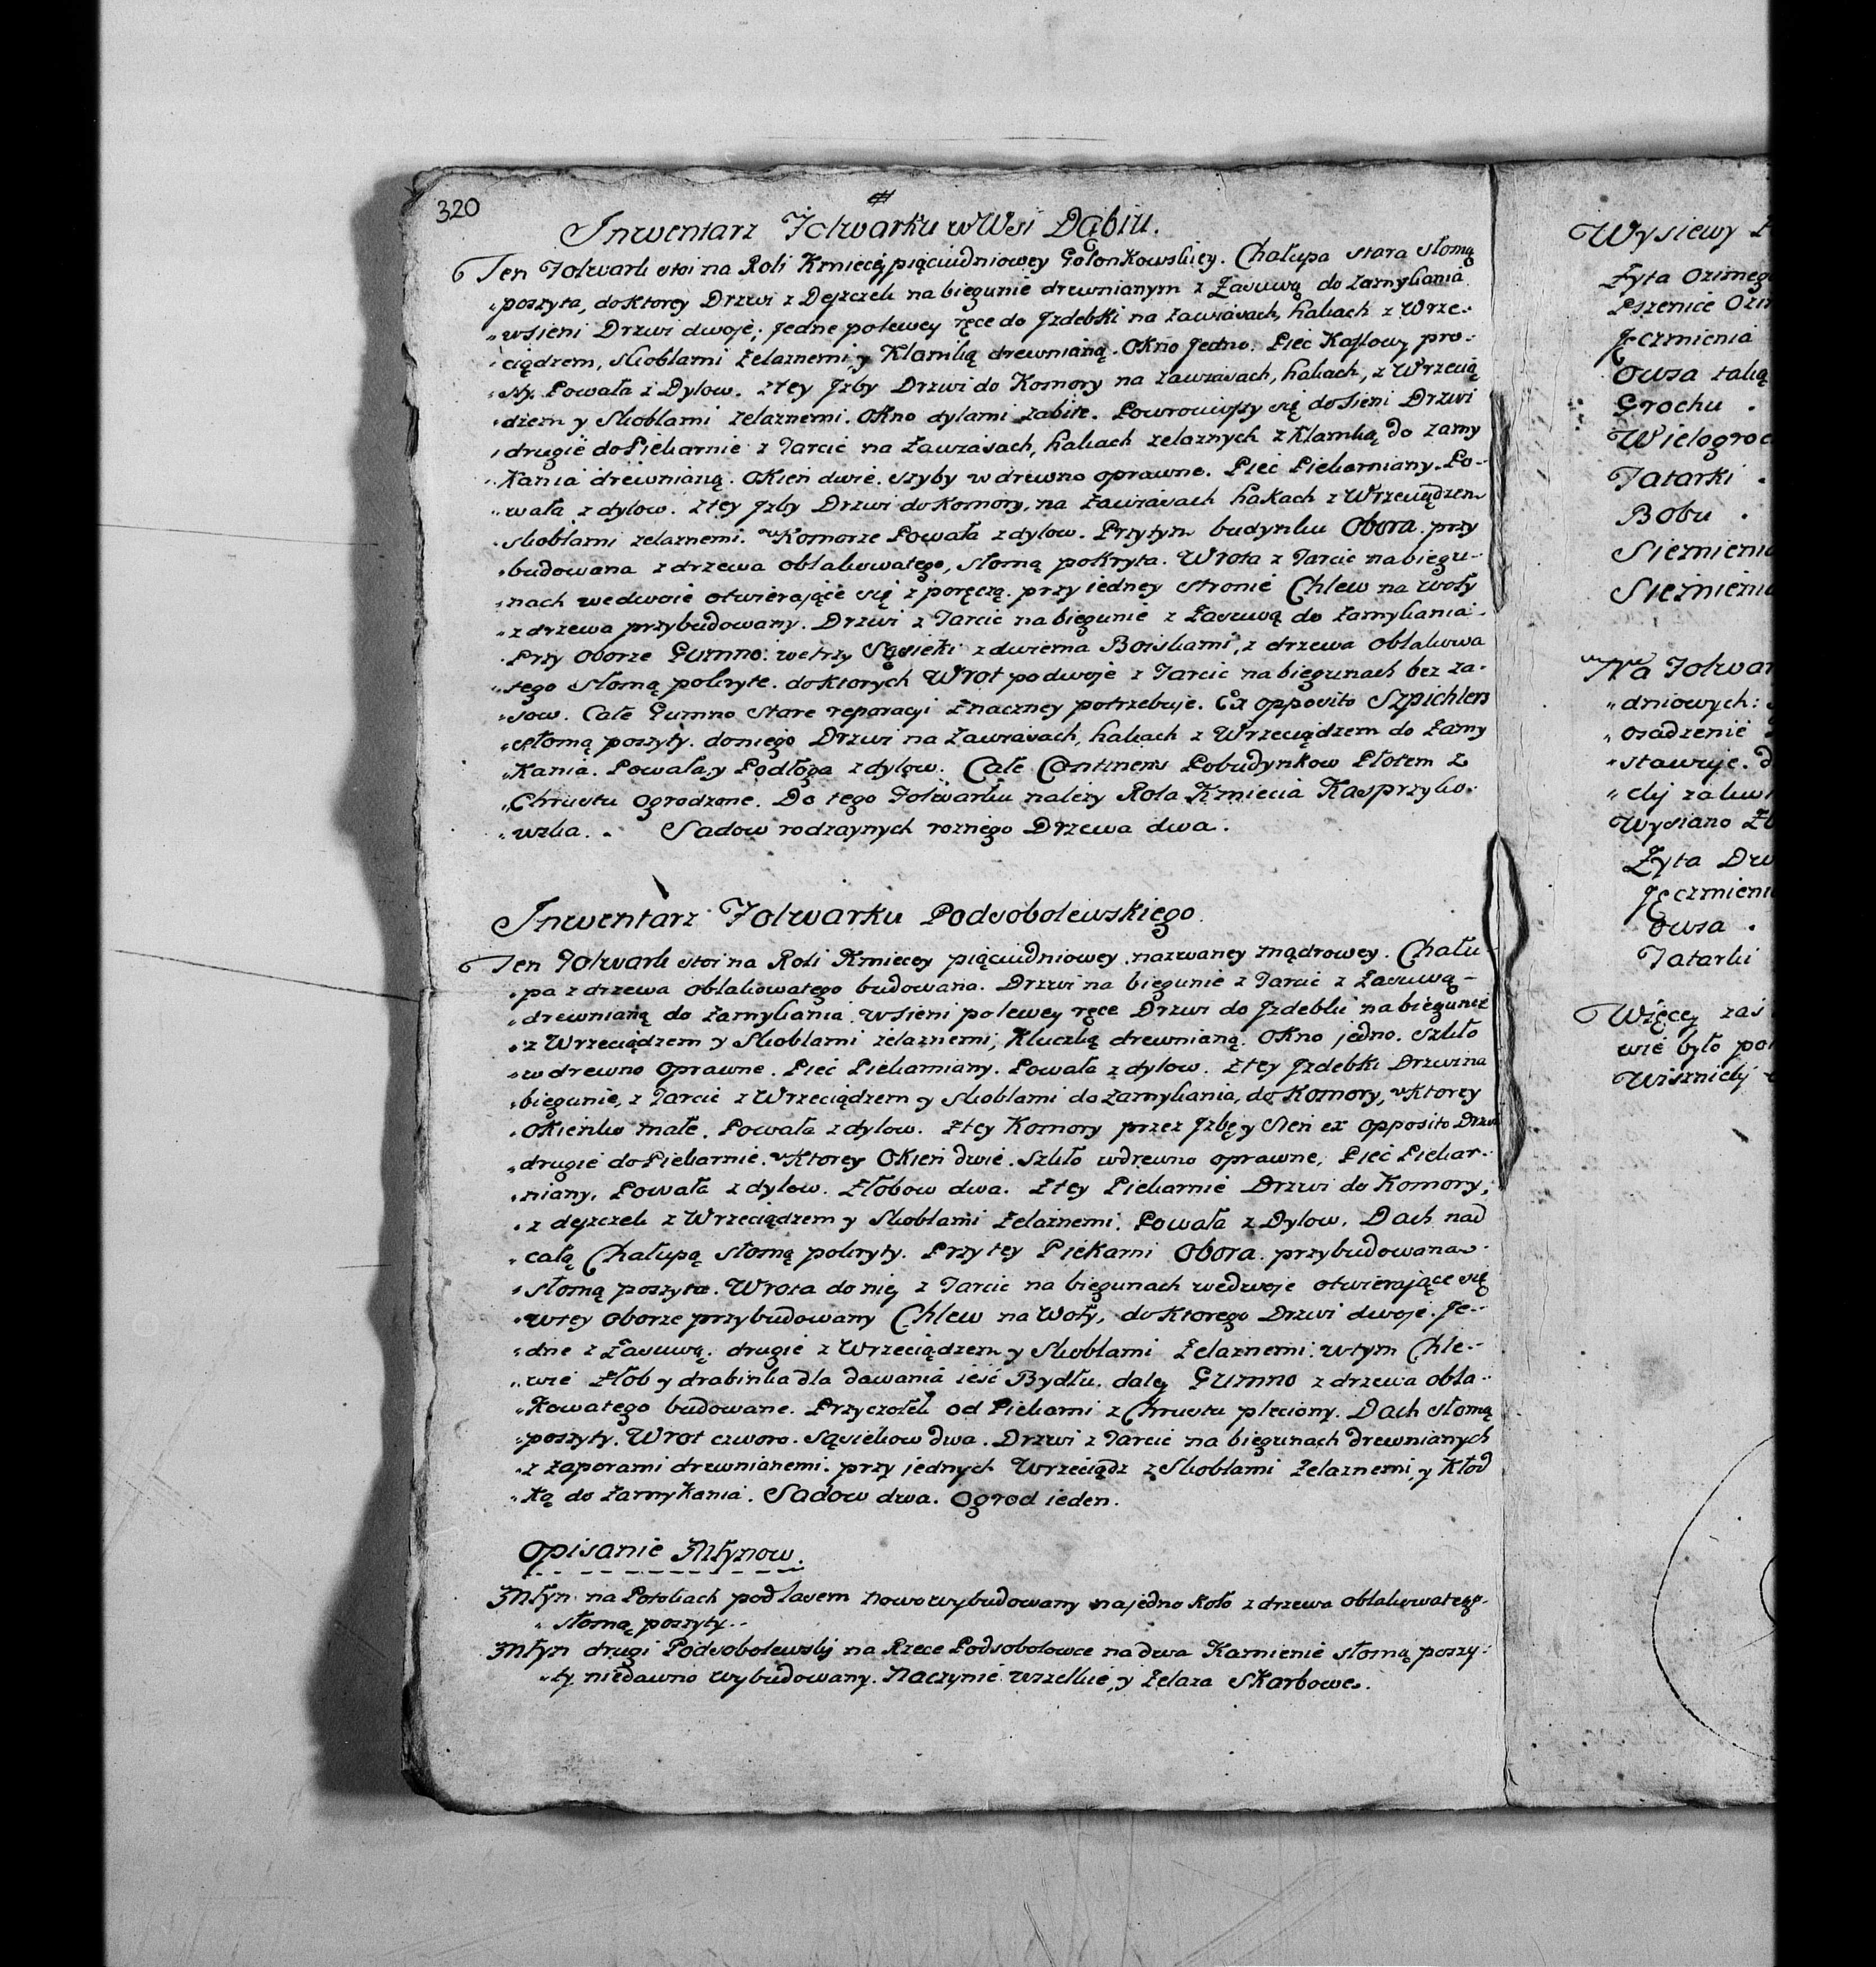 320
Inwentarz Folwarku w Wsi Dąbiu.
Ten Folwark stoi na Roli Kmiecej pięciudniowey Gołonkowskiey. Chałupa stara słomą
poszyta, do ktorey Drzwi z Deszczek na biegunie drewnianym z Zasuwą do zamykania
wsieni Drzwi dwoje; Jedne polewey ręce do Jzdebki na zawiasach, hakach z Wrze-
ciądzem, skoblami żelaznemi, y Klamką drewnianą. Okno Jedno. Piec Kaflowy pro-
sty. Powała z Dylow. z tey Jzby Drzwi do Komory na zawiasach, hakach, z Wrzecią
dzem y Skoblami żelaznemi. Okno dylami zabite. Powrociwszy się do sieni Drzwi
drugie do Piekarnie z Tarcic na Zawiasach, hakach zelaznych z Klamką do zamy
kania drewnianą. Okien dwie. szyby w drewno oprawne. Piec Piekarniany. Po-
wała z dylow. z tey Jzby Drzwi do Komory, na zawiasach hakach z Wrzeciądzem
skoblami zelaznemi. w Komorze Powała z dylow. Przytym budynku Obora przy
budowana z drzewa obłakowatego, słomą pokryta. Wrota z Tarcic na biegu-
nach wedwoie otwieraiące się z poręczą. przy iedney stronie Chlew na woły
z drzewa przybudowany. Drzwi z Tarcic na biegunie z Zasuwą do zamykania
Przy oborze Gumno. wetrzy Sąsieki z dwiema Boiskami, z drzewa obłakowa
tego słomą pokryte. do ktorych Wrot podwoje z Tarcic na biegunach bez za-
sow. Całe Gumno stare reparacyi znaczney potrzebuje. Ex opposito Szpichlerz
słomą poszyty. doniego Drzwi na zawiasach, hakach z Wrzeciądzem do zamy
kania. Powała, y Podłoga z dylow. Całe Continens Pobudynkow Płotem z
Chrustu ogrodzone. Do tego Folwarku należy Rola Kmiecia Kasprzyko-
wska. Sadow rodzaynych roznego Drzewa dwa.
Inwentarz Folwarku Podsobolewskiego.
Ten Folwark stoi na Roli Kmiecey pięciudniowey nazwaney Mądrowey. Chału
pa z drzewa obłakowatego budowana. Drzwi na biegunie z Tarcic z Zasuwą
drewnianą do zamykania. wsieni polewey ręce Drzwi do Jzdebki na biegunie
z Wrzeciądzem y Skoblami żelaznemi, Kluczką drewnianą. Okno jedno. Szkło
w drewno oprawne. Piec Piekarniany. Powała z dylow. z tey Jzdebki Drzwi na
biegunie, z Tarcic z Wrzeciądzem y Skoblami do zamykania, do Komory, w Ktorey
Okienko małe. Powała z dylow. z tey Komory przez Jzbę y Sień ex opposito Drzwi
drugie do Piekarnie, w Ktorey Okien dwie. Szkło w drewno oprawne, Piec Piekar-
niany, Powała z dylow. Złobow dwa. z tey Piekarnie Drzwi do Komory,
z deszczek z Wrzeciądzem y Skoblami żelaznemi. Powała z Dylow. Dach nad
całą Chałupą słomą pokryty. Przy tey Piekarni Obora przybudowana
słomą poszyta. Wrota do niej z Tarcic na biegunach wedwoje otwierające się
wtey oborze przybudowany Chlew na Woły, do Ktorego Drzwi dwoje. Je-
dne z Zasuwą. drugie z Wrzeciądzem y Skoblami żelaznemi. wtym Chle-
wie złob y drabinka dla dawania ieść Bydłu. daley Gumno z drzewa obła-
kowatego budowane. Przyczołek od Piekarni z Chrustu pleciony. Dach słomą
poszyty. Wrot czworo. Sąsiekow dwa. Drzwi z Tarcic na biegunach drewnianych
z zaporami drewnianemi. przy jednych Wrzeciądz z Skoblami żelaznemi, y Kłod
ką do zamykania. Sadow dwa. Ogrod ieden.
Opisanie Młynow.
Młyn na Potokach pod lasem nowo wybudowany na jedno Koło z drzewa obłakowatego
słomą poszyty.
Młyn drugi Podsobolewski na Rzece Podsobolowce na dwa Kamienie słomą poszy-
ty niedawno wybudowany. Naczynie wszelkie, y żelaza Skarbowe.
Wysiewy
Żyta Ozimego
Pszenice Ozim
Jęczmienia
Owsa taką
Grochu
Wielogroc
Tatarki
Bobu
Siemienia
Siemienia
Na Folwar
dniowych:
osadzenie
stawuje.
Wysiano
Żyta
Jęczmieni
Owsa
Tatarki
Więcej zaś
wie było